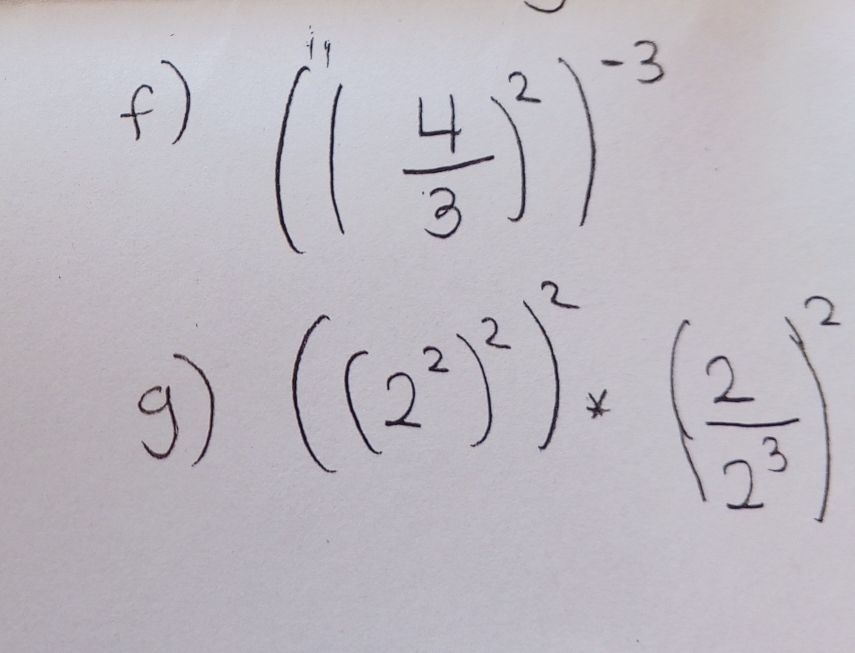 f) ((4/3)^2)^-3
g) ((2^2)^2)^2 * (2/2^3)^2